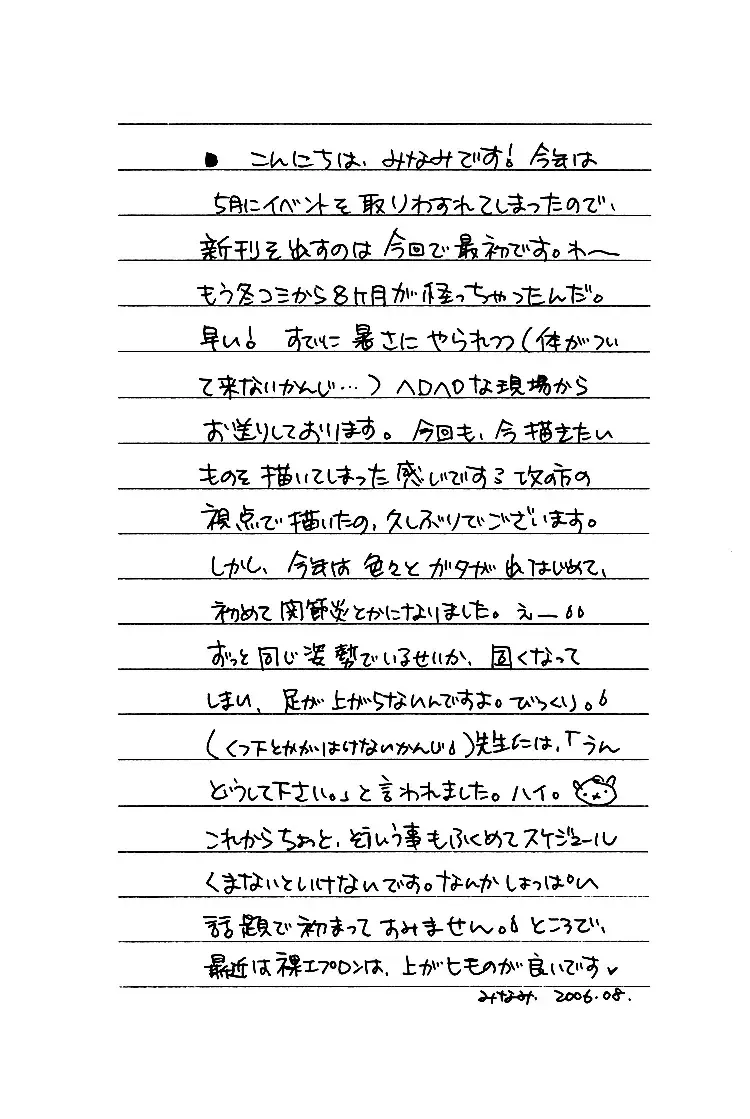 ● こんにちは、みなみです! 今年は
5月にイベントを取りわすれてしまったので、
新刊を出すのは今回で最初です。わ〜
もう冬コミから8ヶ月が経っちゃったんだ。
早い! すでに暑さにやられつつ(体がつい
て来ないかんじ…)ヘロヘロな現場から
お送りしております。今回も、今描きたい
ものを描いてしまった感じです 攻の方の
視点で描いたの、久しぶりでございます。
しかし、今年は色々とガタが出はじめて、
初めて関節炎とかになりました。えー
ずっと同じ姿勢でいるせいか、固くなって
しまい、足が上がらないんですよ。びっくり。
(くつ下とかがはけないかんじ)先生には、「うん
どうして下さい。」と言われました。ハイ。
これからちょっと、そういう事もふくめてスケジュール
くまないといけないです。なんかしょっぱい
話題で初まってすみません。ところで、
最近は裸エプロンは、上がヒモのが良いです♥
みなみ. 2006.08.